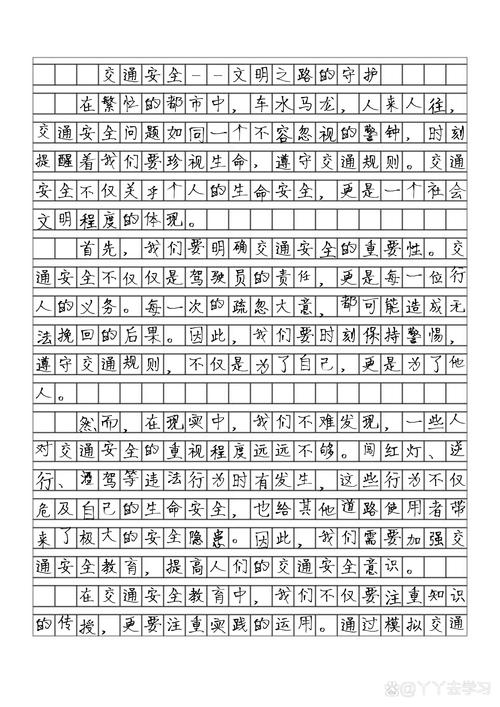 交通安全--文明之路的守护
在繁忙的都市中，车水马龙，人来人往，
交通安全问题如同一个不容忽视的警钟，时刻
提醒着我们要珍视生命，遵守交通规则。交通
安全不仅关乎个人的生命安全，更是一个社会
文明程度的体现。
首先，我们要明确交通安全的重要性。交
通安全不仅仅是驾驶员的责任，更是每一位行
人的义务。每一次的疏忽大意，都可能造成无
法挽回的后果。因此，我们要时刻保持警惕，
遵守交通规则，不仅是为了自己，更是为了他
人。
然而，在现实中，我们不难发现，一些人
对交通安全的重视程度远远不够。闯红灯、逆
行、酒驾等违法行为时有发生，这些行为不仅
危及自己的生命安全，也给其他道路使用者带
来了极大的安全隐患。因此，我们需要加强交
通安全教育，提高人们的交通安全意识。
在交通安全教育中，我们不仅要注重知识
的传授，更要注重实践的运用。通过模拟交通
@丫丫去学习